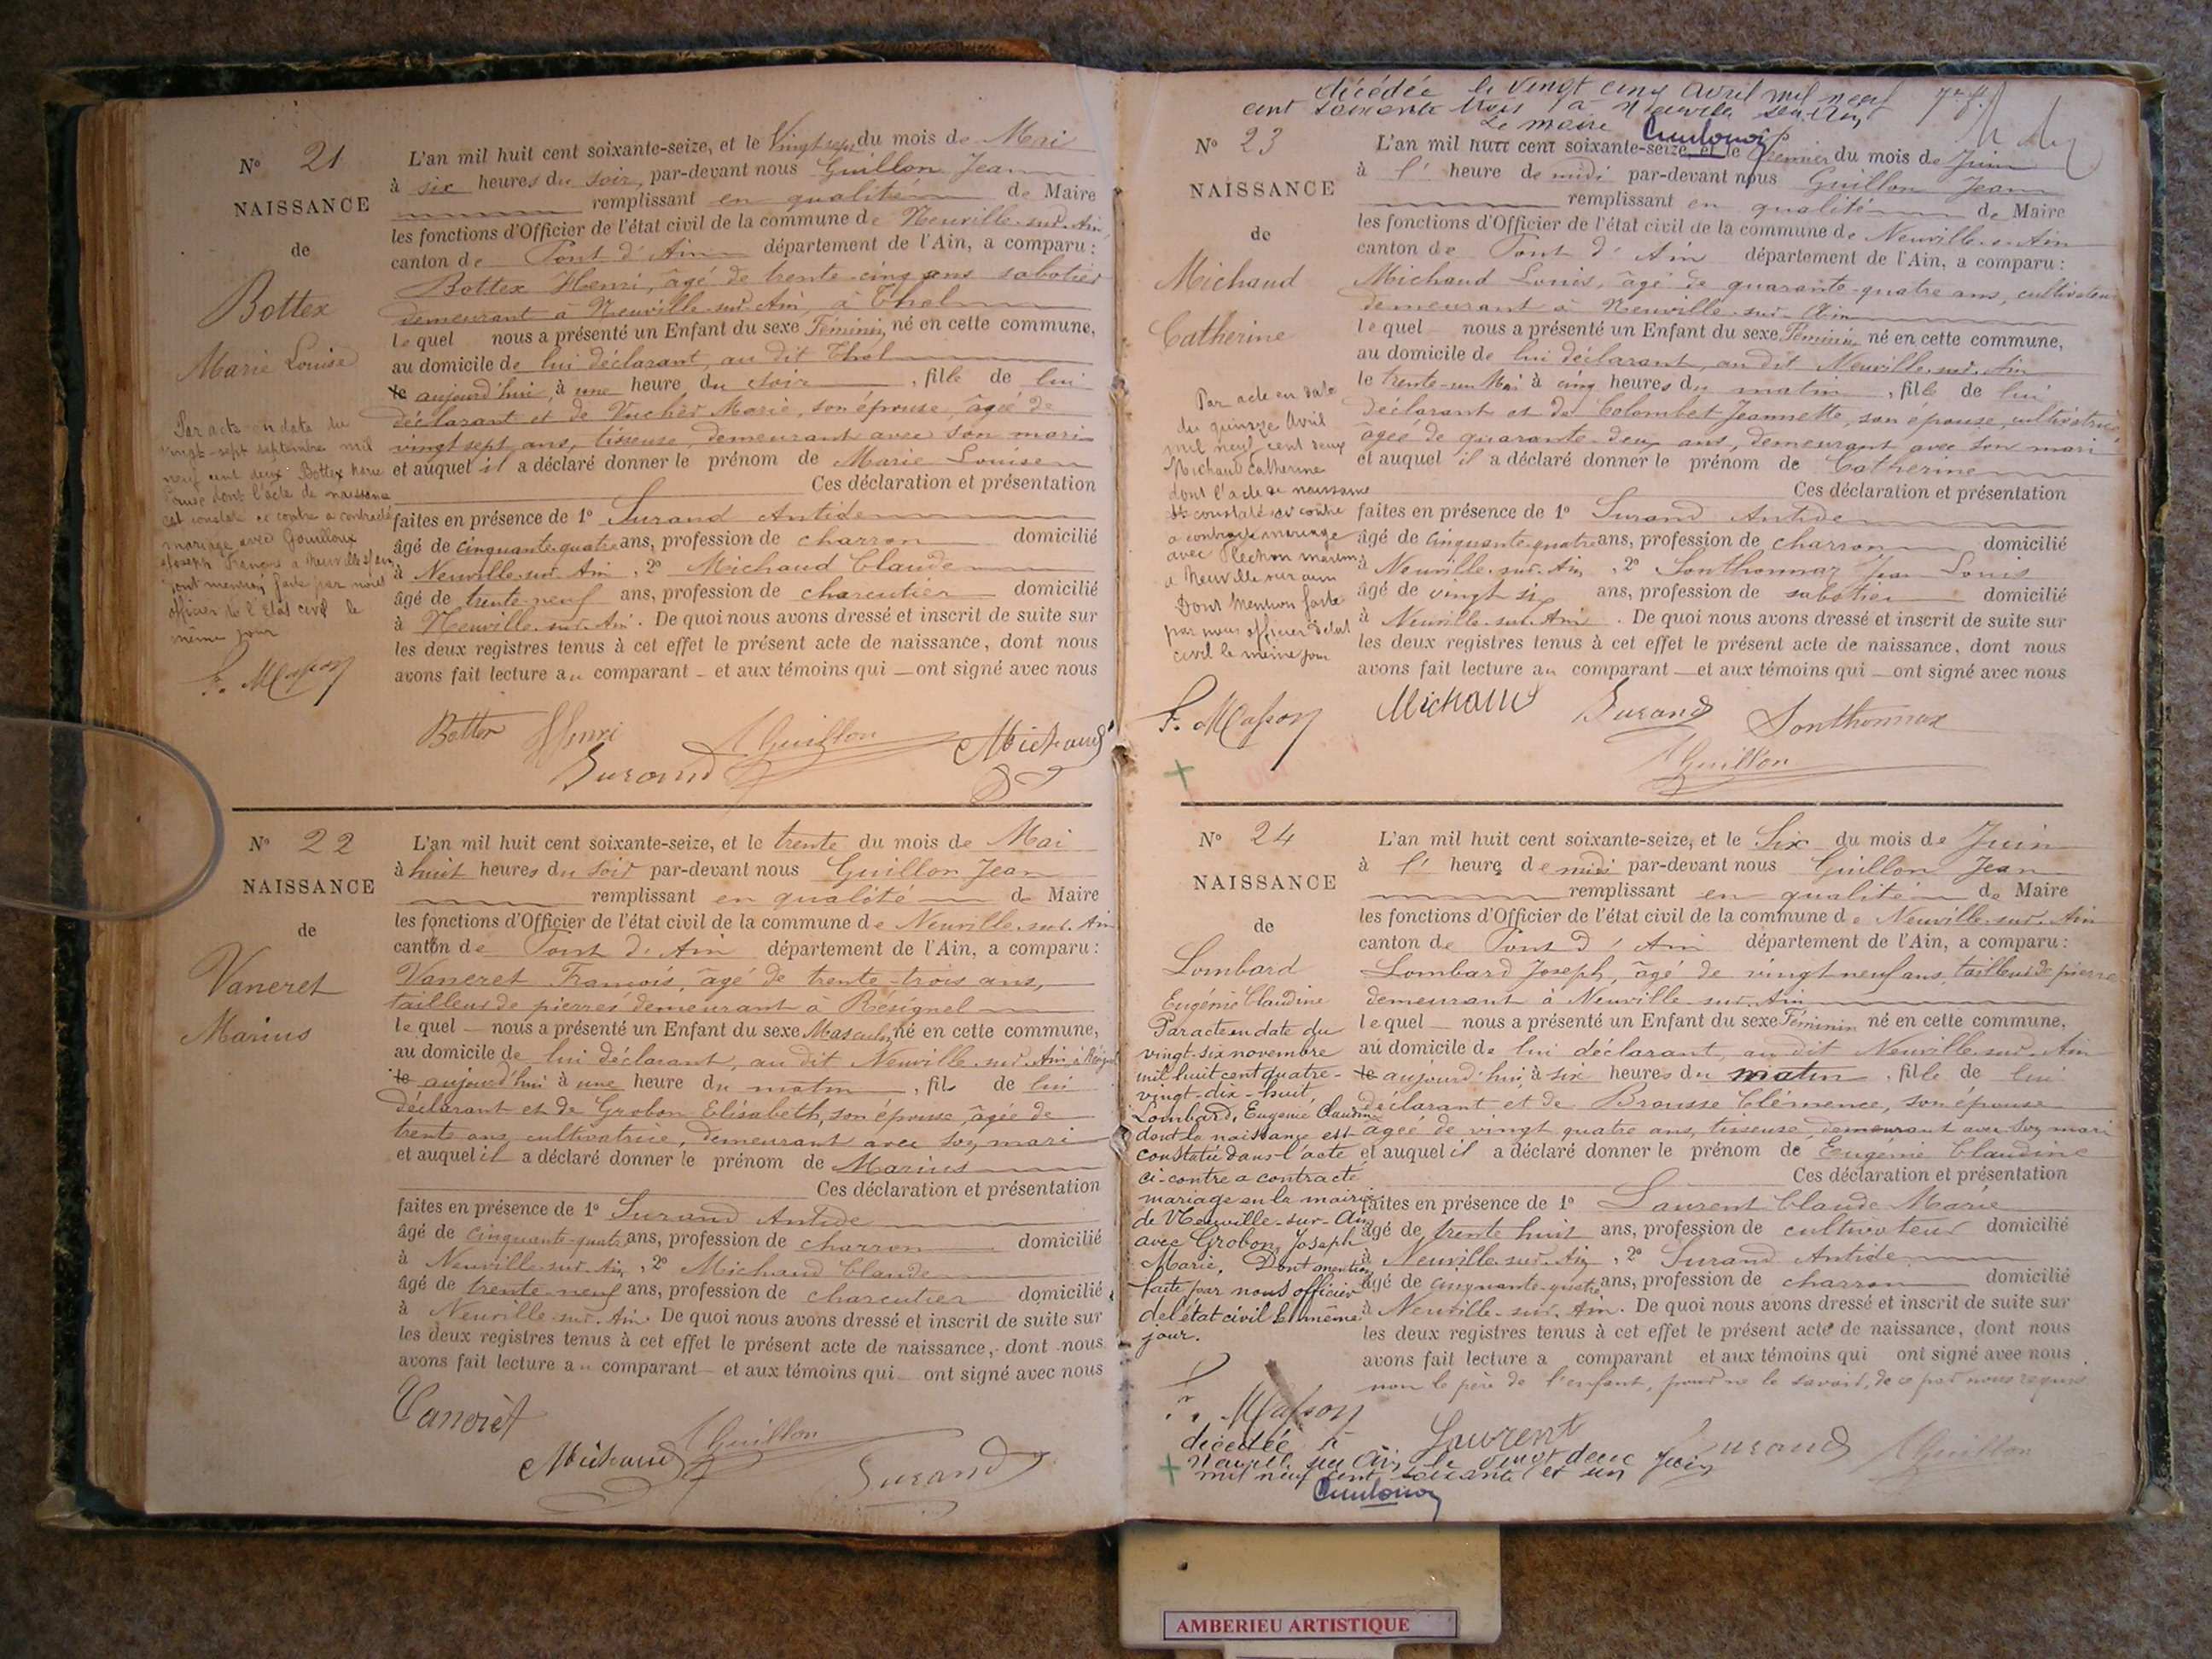 N° 21
NAISSANCE
de
Bottex
Marie Louise
Par acte en date du
vingt-sept septembre mil
neuf cent deux Bottex Marie
Louise dont l'acte de naissance
est constaté ci contre a contracté
mariage avec Gouilloux
Joseph François à Neuville s/ Ain
Dont mention faite par nous
officier de l'Etat civil le
même jour
F. Masson
L'an mil huit cent soixante-seize, et le Vingt sept du mois de Mai
à six heures du soir, par-devant nous Guillon Jean
remplissant en qualité de Maire
les fonctions d'Officier de l'état civil de la commune de Neuville-sur-Ain
canton de Pont d'Ain département de l'Ain, a comparu :
Bottex Henri, âgé de trente-cinq ans sabotier
demeurant à Neuville-sur-Ain, à Thol
lequel nous a présenté un Enfant du sexe Féminin, né en cette commune,
au domicile de lui déclarant, au dit Thol
le aujourd'hui, à une heure du soir, fille de lui
déclarant et de Vucher Marie, son épouse, âgée de
vingt sept ans, tisseuse, demeurant avec son mari
et auquel il a déclaré donner le prénom de Marie Louise
Ces déclaration et présentation
faites en présence de 1° Durand Antide
âgé de cinquante-quatre ans, profession de charron domicilié
à Neuville-sur-Ain, 2° Michaud Claude
âgé de trente-neuf ans, profession de charcutier domicilié
à Neuville-sur-Ain. De quoi nous avons dressé et inscrit de suite sur
les deux registres tenus à cet effet le présent acte de naissance, dont nous
avons fait lecture au comparant et aux témoins qui ont signé avec nous
Bottex Henri
Durand
Guillon
Michaud
N° 22
NAISSANCE
de
Vaneret
Marius
L'an mil huit cent soixante-seize, et le trente du mois de Mai
à huit heures du soir par-devant nous Guillon Jean
remplissant en qualité de Maire
les fonctions d'Officier de l'état civil de la commune de Neuville-sur-Ain
canton de Pont d'Ain département de l'Ain, a comparu :
Vaneret François, âgé de trente-trois ans,
tailleur de pierres demeurant à Résignel
lequel nous a présenté un Enfant du sexe Masculin, né en cette commune,
au domicile de lui déclarant, au dit Neuville-sur-Ain
le aujourd'hui à une heure du matin, fils de lui
déclarant et de Grobon Elisabeth, son épouse, âgée de
trente ans, cultivatrice, demeurant avec son mari
et auquel il a déclaré donner le prénom de Marius
Ces déclaration et présentation
faites en présence de 1° Durand Antide
âgé de cinquante-quatre ans, profession de charron domicilié
à Neuville-sur-Ain, 2° Michaud Claude
âgé de trente-neuf ans, profession de charcutier domicilié
à Neuville-sur-Ain. De quoi nous avons dressé et inscrit de suite sur
les deux registres tenus à cet effet le présent acte de naissance, dont nous
avons fait lecture au comparant et aux témoins qui ont signé avec nous
Vaneret
Michaud
Guillon
Durand
décédée le vingt cinq avril mil neuf
cent soixante trois à Neuville sur Ain
Le maire
N° 23
NAISSANCE
de
Michaud
Catherine
Par acte en date
du quinze Avril
mil neuf cent deux
Michaud Catherine
dont l'acte de naissance
est constaté ci contre
a contracté mariage
avec
à Neuville sur ain
Dont Mention faite
par nous officier d'état
civil le même jour
F. Masson
L'an mil huit cent soixante-seize, et le premier du mois de Juin
à l' heure de midi par-devant nous Guillon Jean
remplissant en qualité de Maire
les fonctions d'Officier de l'état civil de la commune de Neuville-s-Ain
canton de Pont d'Ain département de l'Ain, a comparu :
Michaud Louis, âgé de quarante-quatre ans, cultivateur
demeurant à Neuville-sur-Ain
lequel nous a présenté un Enfant du sexe Féminin né en cette commune,
au domicile de lui déclarant, au dit Neuville-sur-Ain
le trente-un Mai à cinq heures du matin, fille de lui
déclarant et de Colombet Jeannette, son épouse, cultivatrice
âgée de quarante-deux ans, demeurant avec son mari
et auquel il a déclaré donner le prénom de Catherine
Ces déclaration et présentation
faites en présence de 1° Durand Antide
âgé de cinquante-quatre ans, profession de charron domicilié
à Neuville-sur-Ain, 2° Sonthonnax Jean Louis
âgé de vingt six ans, profession de sabotier domicilié
à Neuville-sur-Ain. De quoi nous avons dressé et inscrit de suite sur
les deux registres tenus à cet effet le présent acte de naissance, dont nous
avons fait lecture au comparant et aux témoins qui ont signé avec nous
Michaud
Durand
Sonthonnax
Guillon
N° 24
NAISSANCE
de
Lombard
Eugénie Claudine
Par acte en date du
vingt-six novembre
mil huit cent quatre-
vingt-dix-huit,
Lombard, Eugénie Claudine
dont la naissance est
constatée dans l'acte
ci-contre a contracté
mariage en la mairie
de Neuville-sur-Ain
avec Grobon, Joseph
Marie. Dont mention
faite par nous officier
de l'état civil le même
jour.
F. Masson
décédée à
Neuville sur Ain le vingt deux Juin
mil neuf cent soixante et un
L'an mil huit cent soixante-seize, et le Six du mois de Juin
à l' heure de midi par-devant nous Guillon Jean
remplissant en qualité de Maire
les fonctions d'Officier de l'état civil de la commune de Neuville-sur-Ain
canton de Pont d'Ain département de l'Ain, a comparu :
Lombard Joseph, âgé de vingt neuf ans, tailleur de pierre
demeurant à Neuville-sur-Ain
lequel nous a présenté un Enfant du sexe Féminin né en cette commune,
au domicile de lui déclarant, au dit Neuville-sur-Ain
le aujourd'hui, à six heures du matin, fille de lui
déclarant et de Brousse Clémence, son épouse
âgée de vingt quatre ans, tisseuse, demeurant avec son mari
et auquel il a déclaré donner le prénom de Eugénie Claudine
Ces déclaration et présentation
faites en présence de 1° Laurent Claude Marie
âgé de trente huit ans, profession de cultivateur domicilié
à Neuville-sur-Ain, 2° Durand Antide
âgé de cinquante-quatre ans, profession de charron domicilié
à Neuville-sur-Ain. De quoi nous avons dressé et inscrit de suite sur
les deux registres tenus à cet effet le présent acte de naissance, dont nous
avons fait lecture a comparant et aux témoins qui ont signé avec nous
non le père de l'enfant, pour ne le savoir, de ce par nous requis
Laurent
Durand
Guillon
AMBERIEU ARTISTIQUE